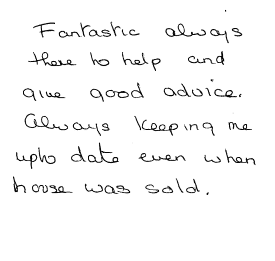 Fantastic always
there to help and
give good advice.
Always keeping me
upto date even when
house was sold.